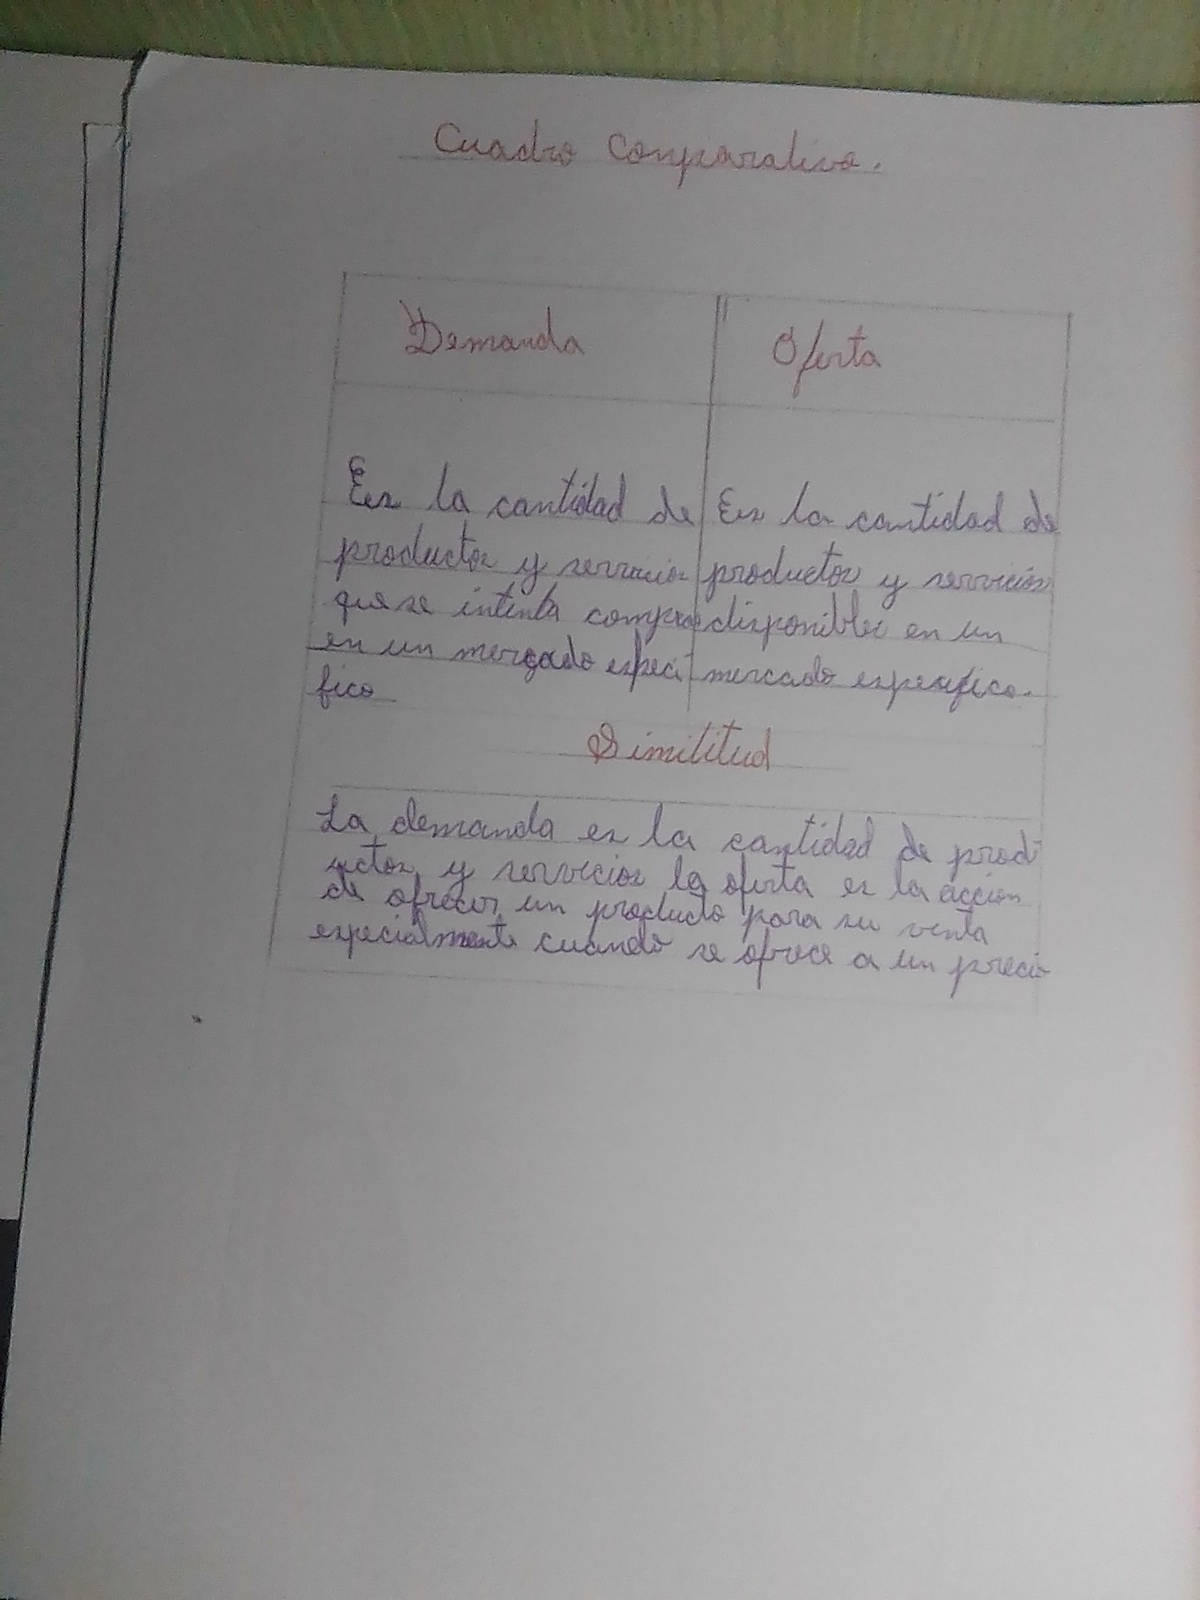 Cuadro Conparativo.
Demanda
Oferta
Es la cantidad de
productos y servicios
que se intenta comprar
en un mercado especi
fico
Es la cantidad de
productos y servicios
disponibles en un
mercado especifico.
Similitud
La demanda es la cantidad de prod
uctos y servicios la oferta es la acción
de ofrecer un producto para su venta
especialmente cuando se ofrece a un precio